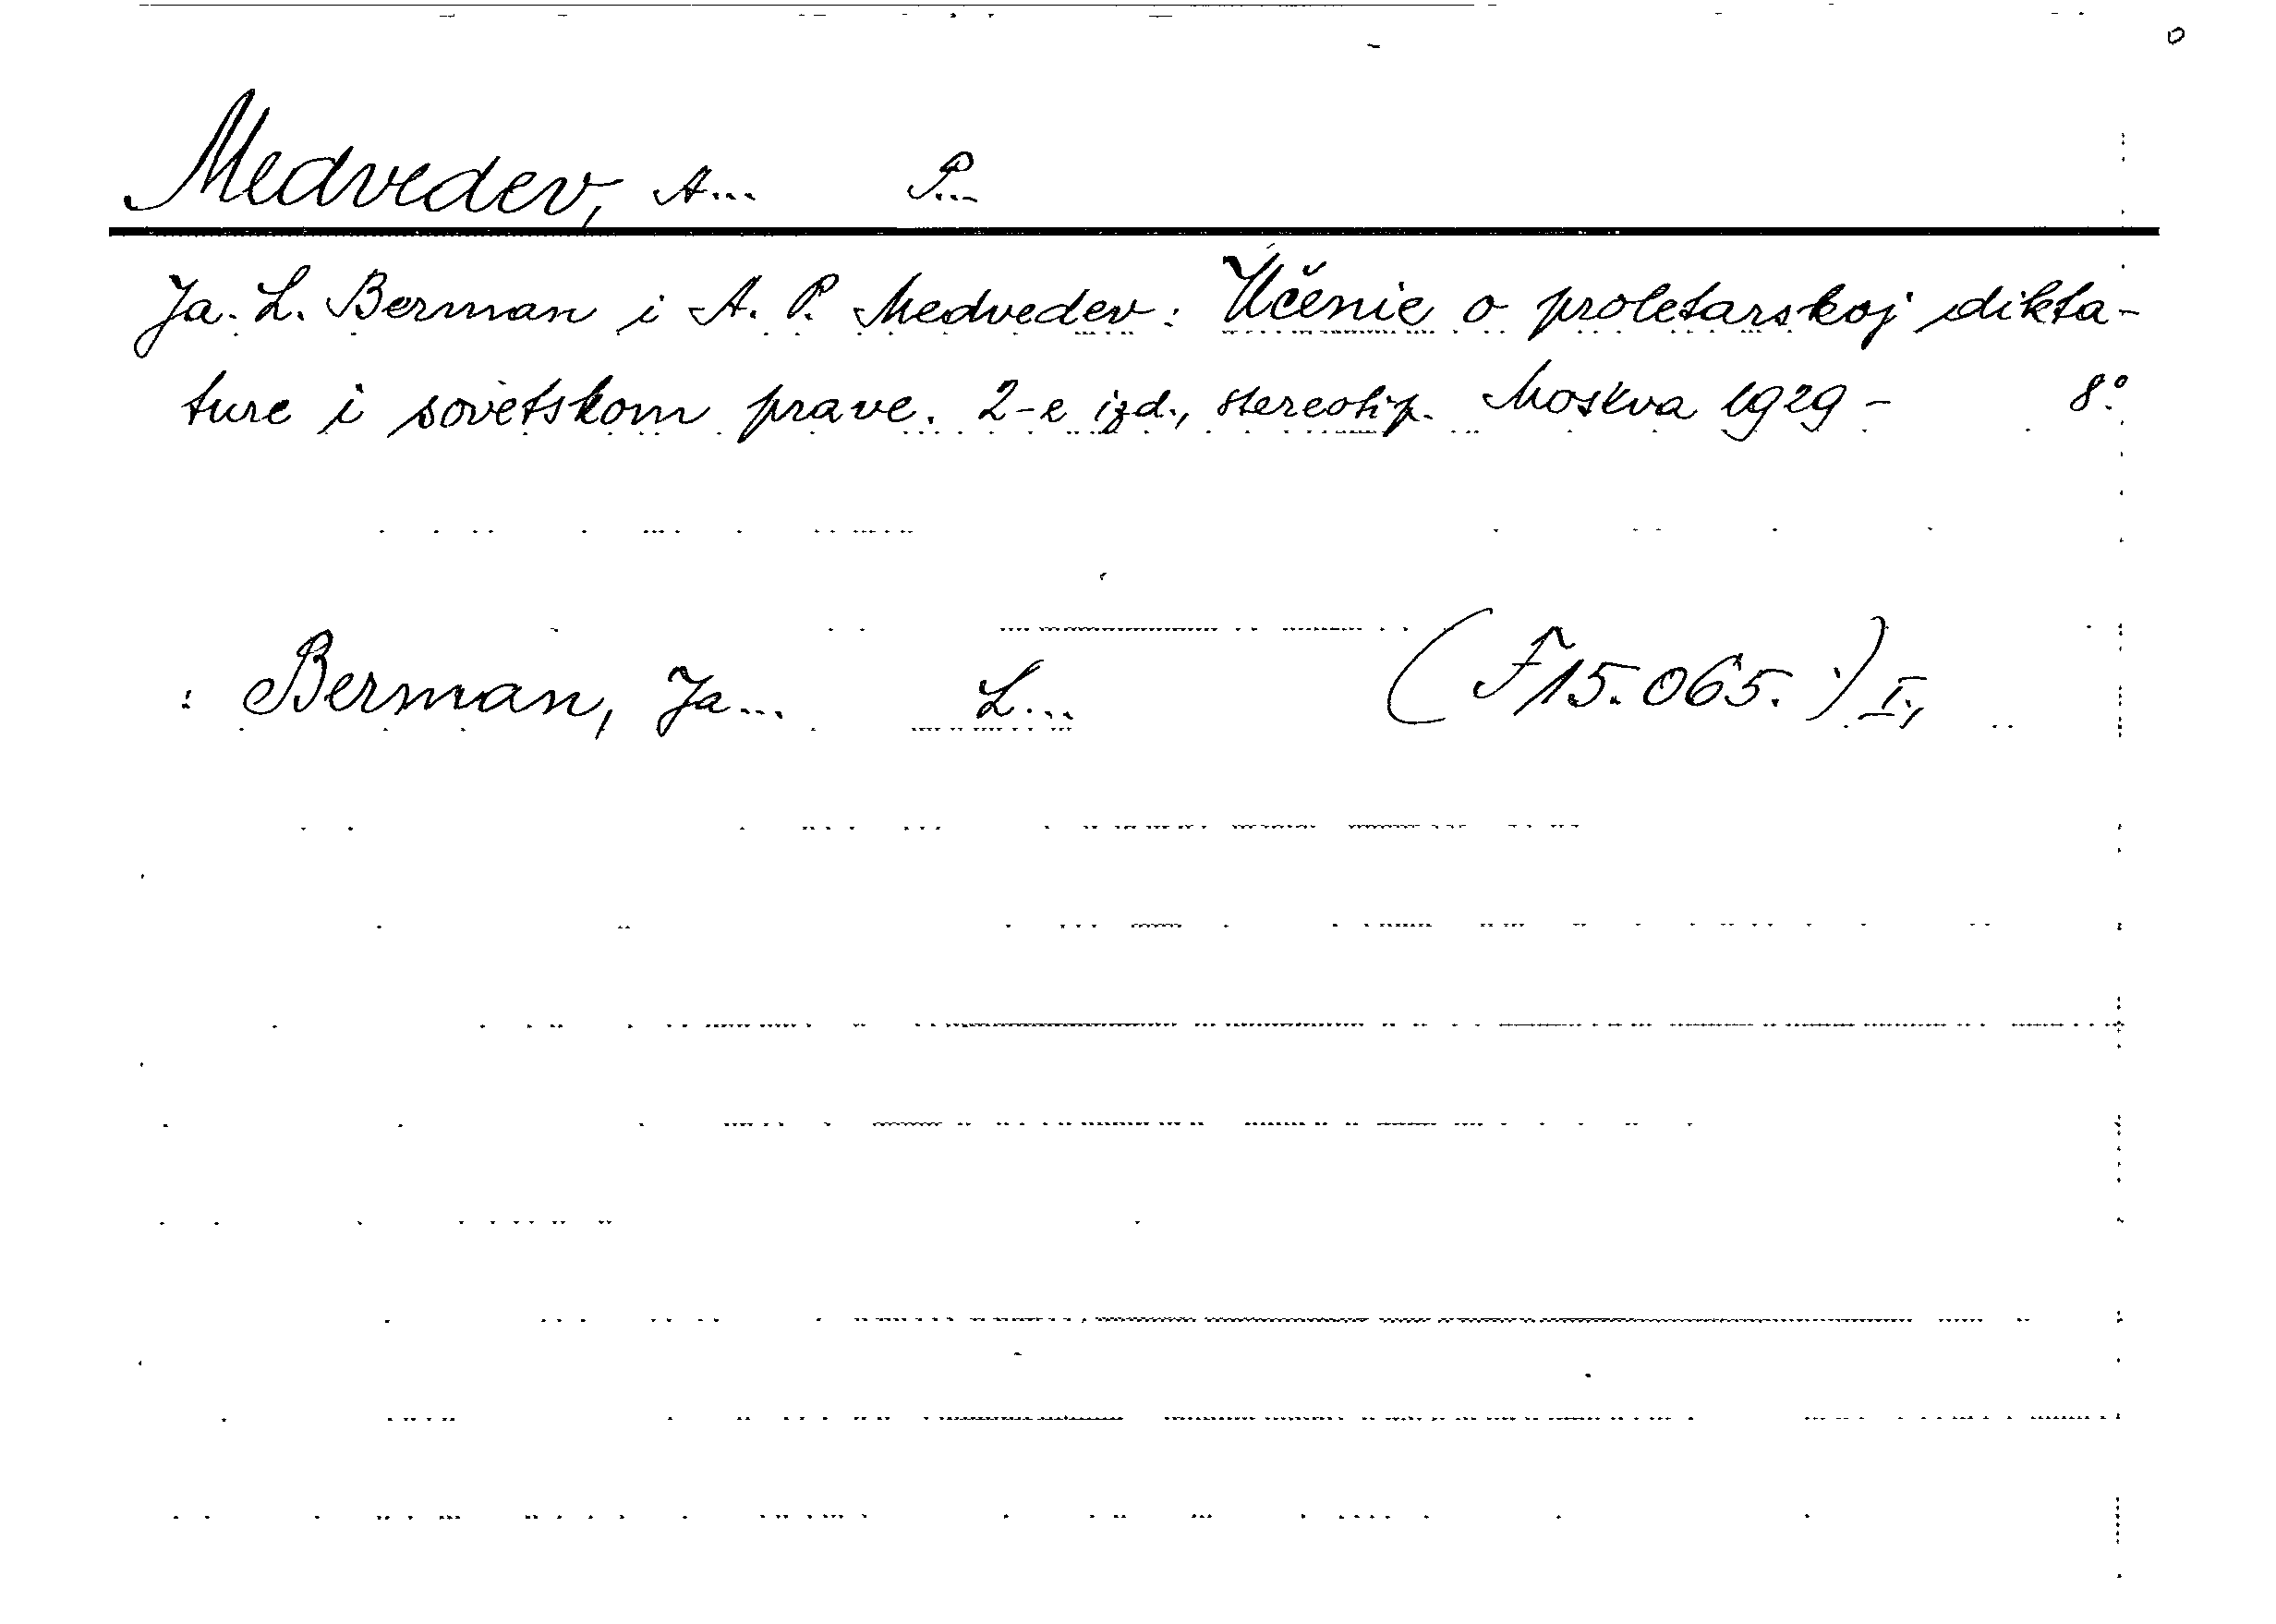 Medvedev, A... P...
Ja. L. Berman i A. P. Medvedev: Učenie o proletarskoj dikta-
ture i sovetskom prave. 2-e izd., stereotip. Moskva 1929 - 8°.
: Berman, Ja... L... (F15.065.) I.,